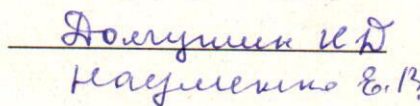 Долгушин И Д
Науменко Е.В